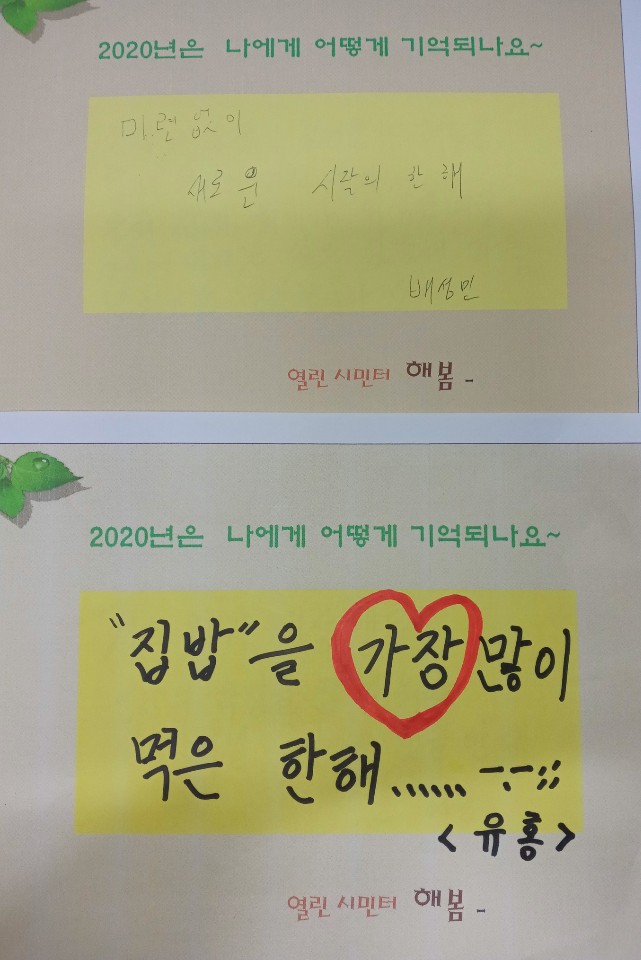 2020년은 나에게 어떻게 기억되나요~
미련없이
새로운 시작의 한 해
배성민
열린 시민터 해봄_
2020년은 나에게 어떻게 기억되나요~
"집밥"을 가장 많이
먹은 한해...... -.-;;
<유홍>
열린 시민터 해봄_